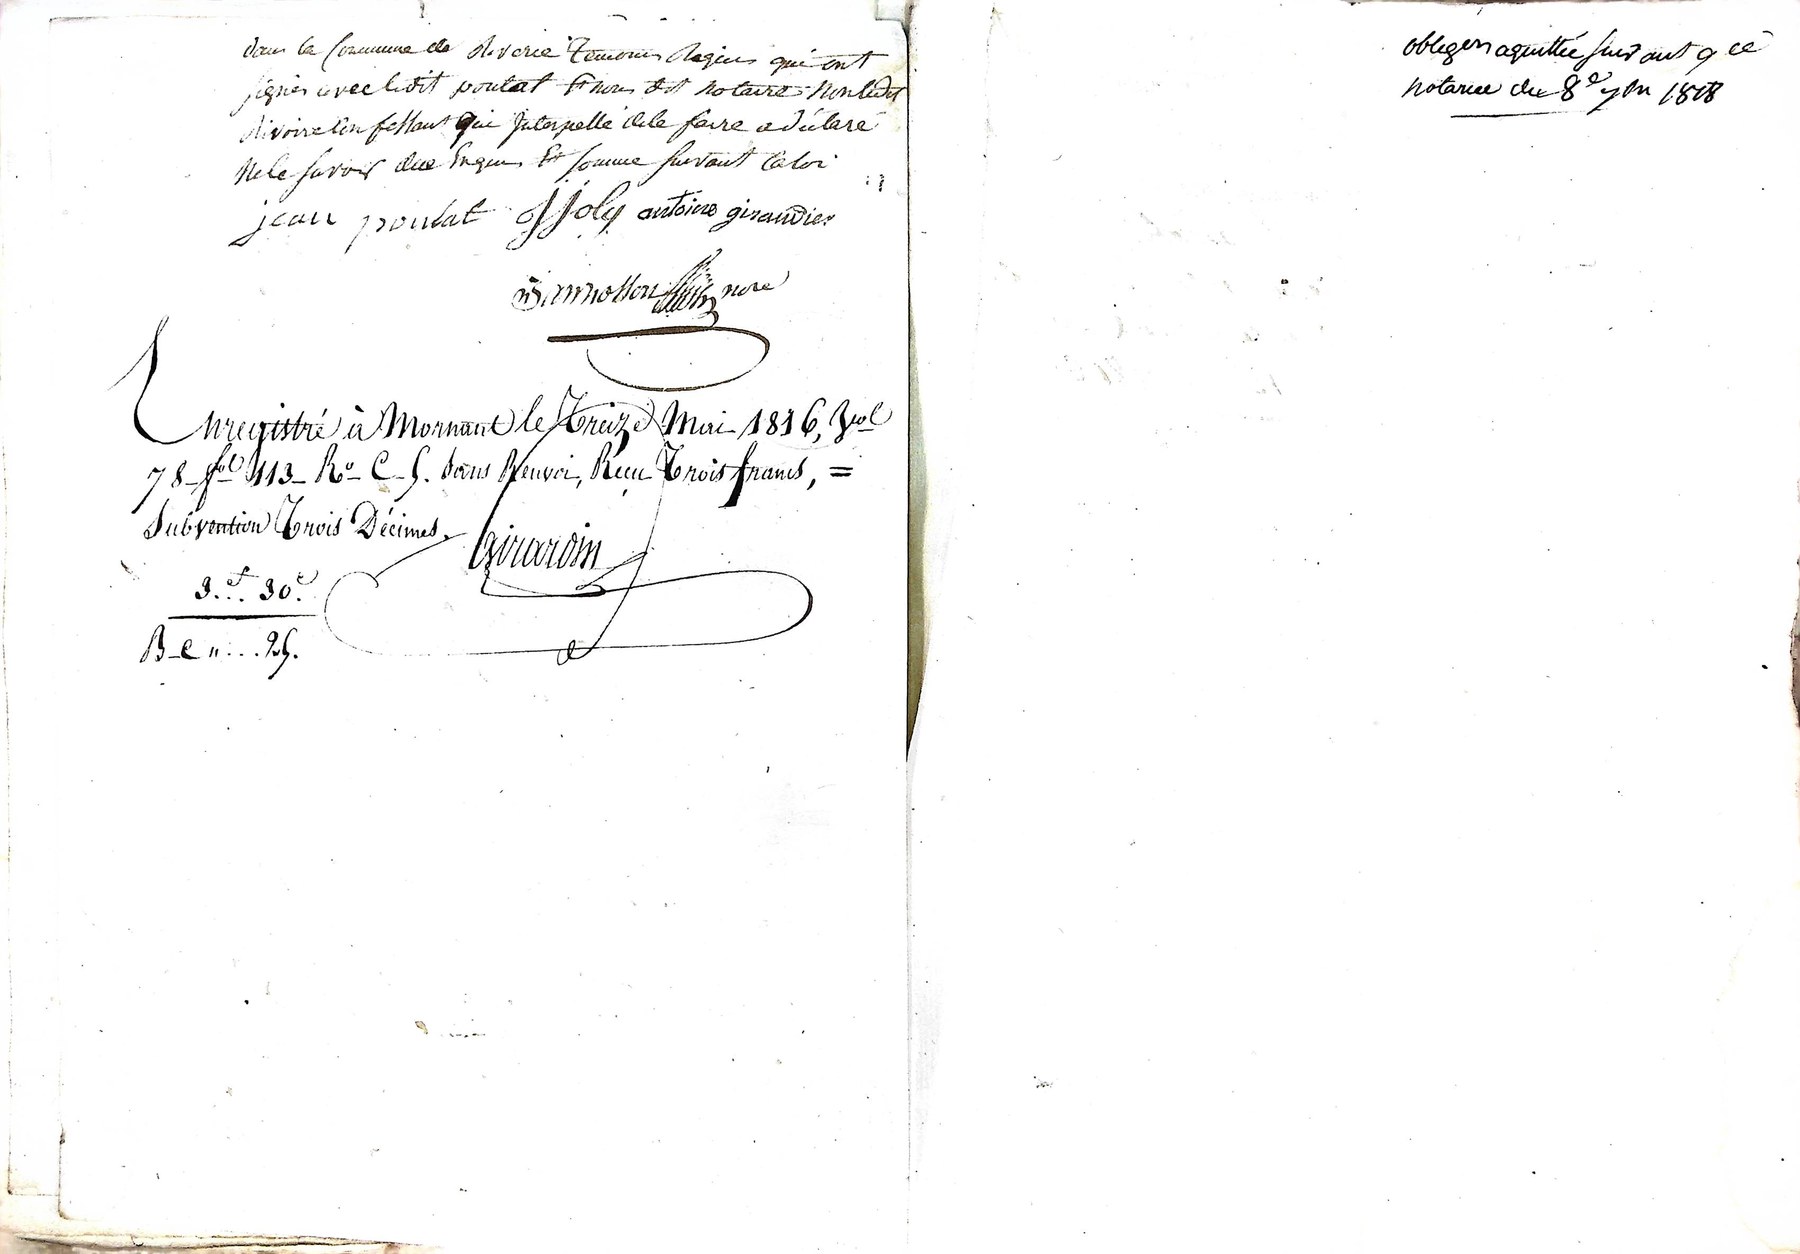 dans la Commune de Riverie temoins Requis qui ont
signés avec ledit poulat Et nous dit notaire Non ledit
Rivoire Confessant Qui Interpellé dele faire a déclaré
Ne le savoir due Enquis Et somme suivant la loi
jean poulat JJoly antoine giraudier
nore
Enregistré à Mornant le Treize Mai 1816, Vol
78 fol 113 Ro C 5. sans Renvoi, Reçu Trois francs, =
Subvention Trois Décimes.
Girardin
3.f. 30c.
B C " ... 25.
obligon aquittée suivant q ce
notariee du 8e 7bre 1818